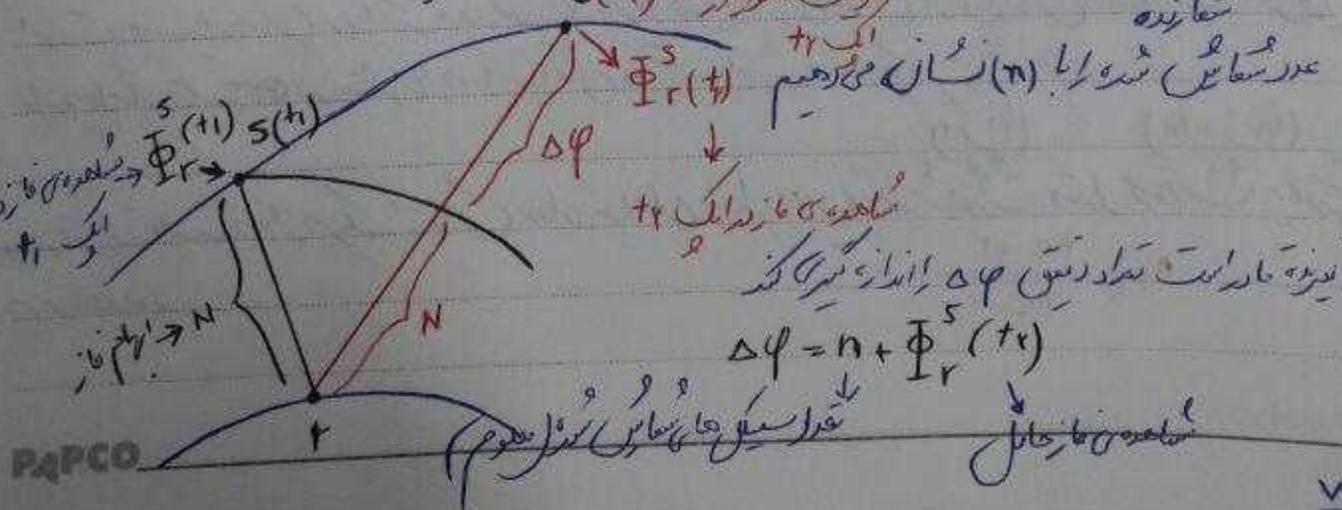 شمارنده
عدد شمارش شده را با (n) نشان می‌دهیم
اپک t₂
Φᵣˢ(t₂)
Δφ
Φᵣˢ(t₁) S(t₁)
مشاهده‌ی فاز در
اپک t₁
مشاهده‌ی فاز در اپک t₂
گیرنده قادر است تعداد دقیق Δφ را اندازه گیری کند
N
ابهام فاز → N
Δφ = n + Φᵣˢ(t₂)
r
تعداد سیکل های شمارش شده (معلوم)
مشاهده‌ی فاز
PAPCO